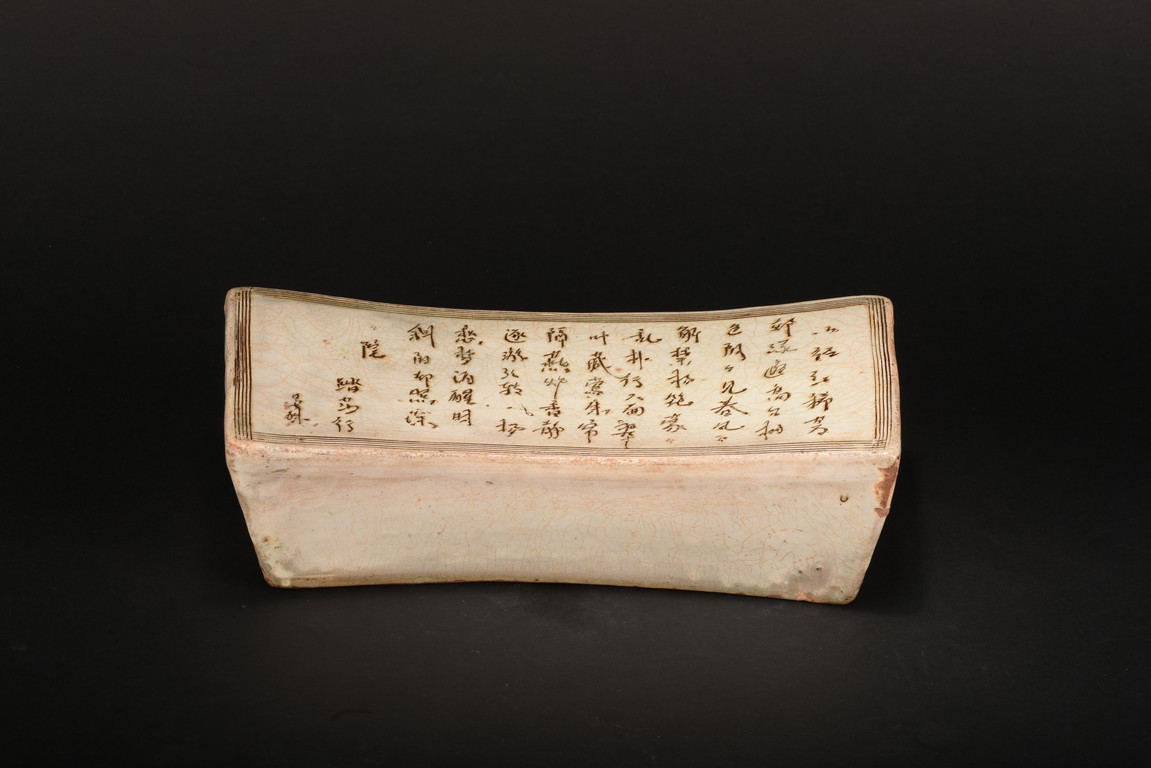 小径红稀芳
郊绿遍高台树
色阴々见春风不
解禁杨花蒙々
乱扑行人面翠
叶藏莺朱帘
隔燕炉香静
逐游丝转一场
愁梦酒醒时
斜阳却照深々
院
踏莎行
晏殊